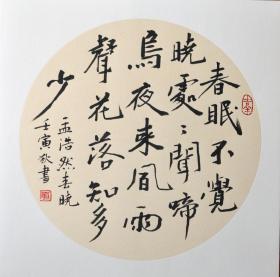 春眠不覺
曉處〻聞啼
鳥夜来風雨
聲花落知多
少
孟浩然春曉
壬寅秋書